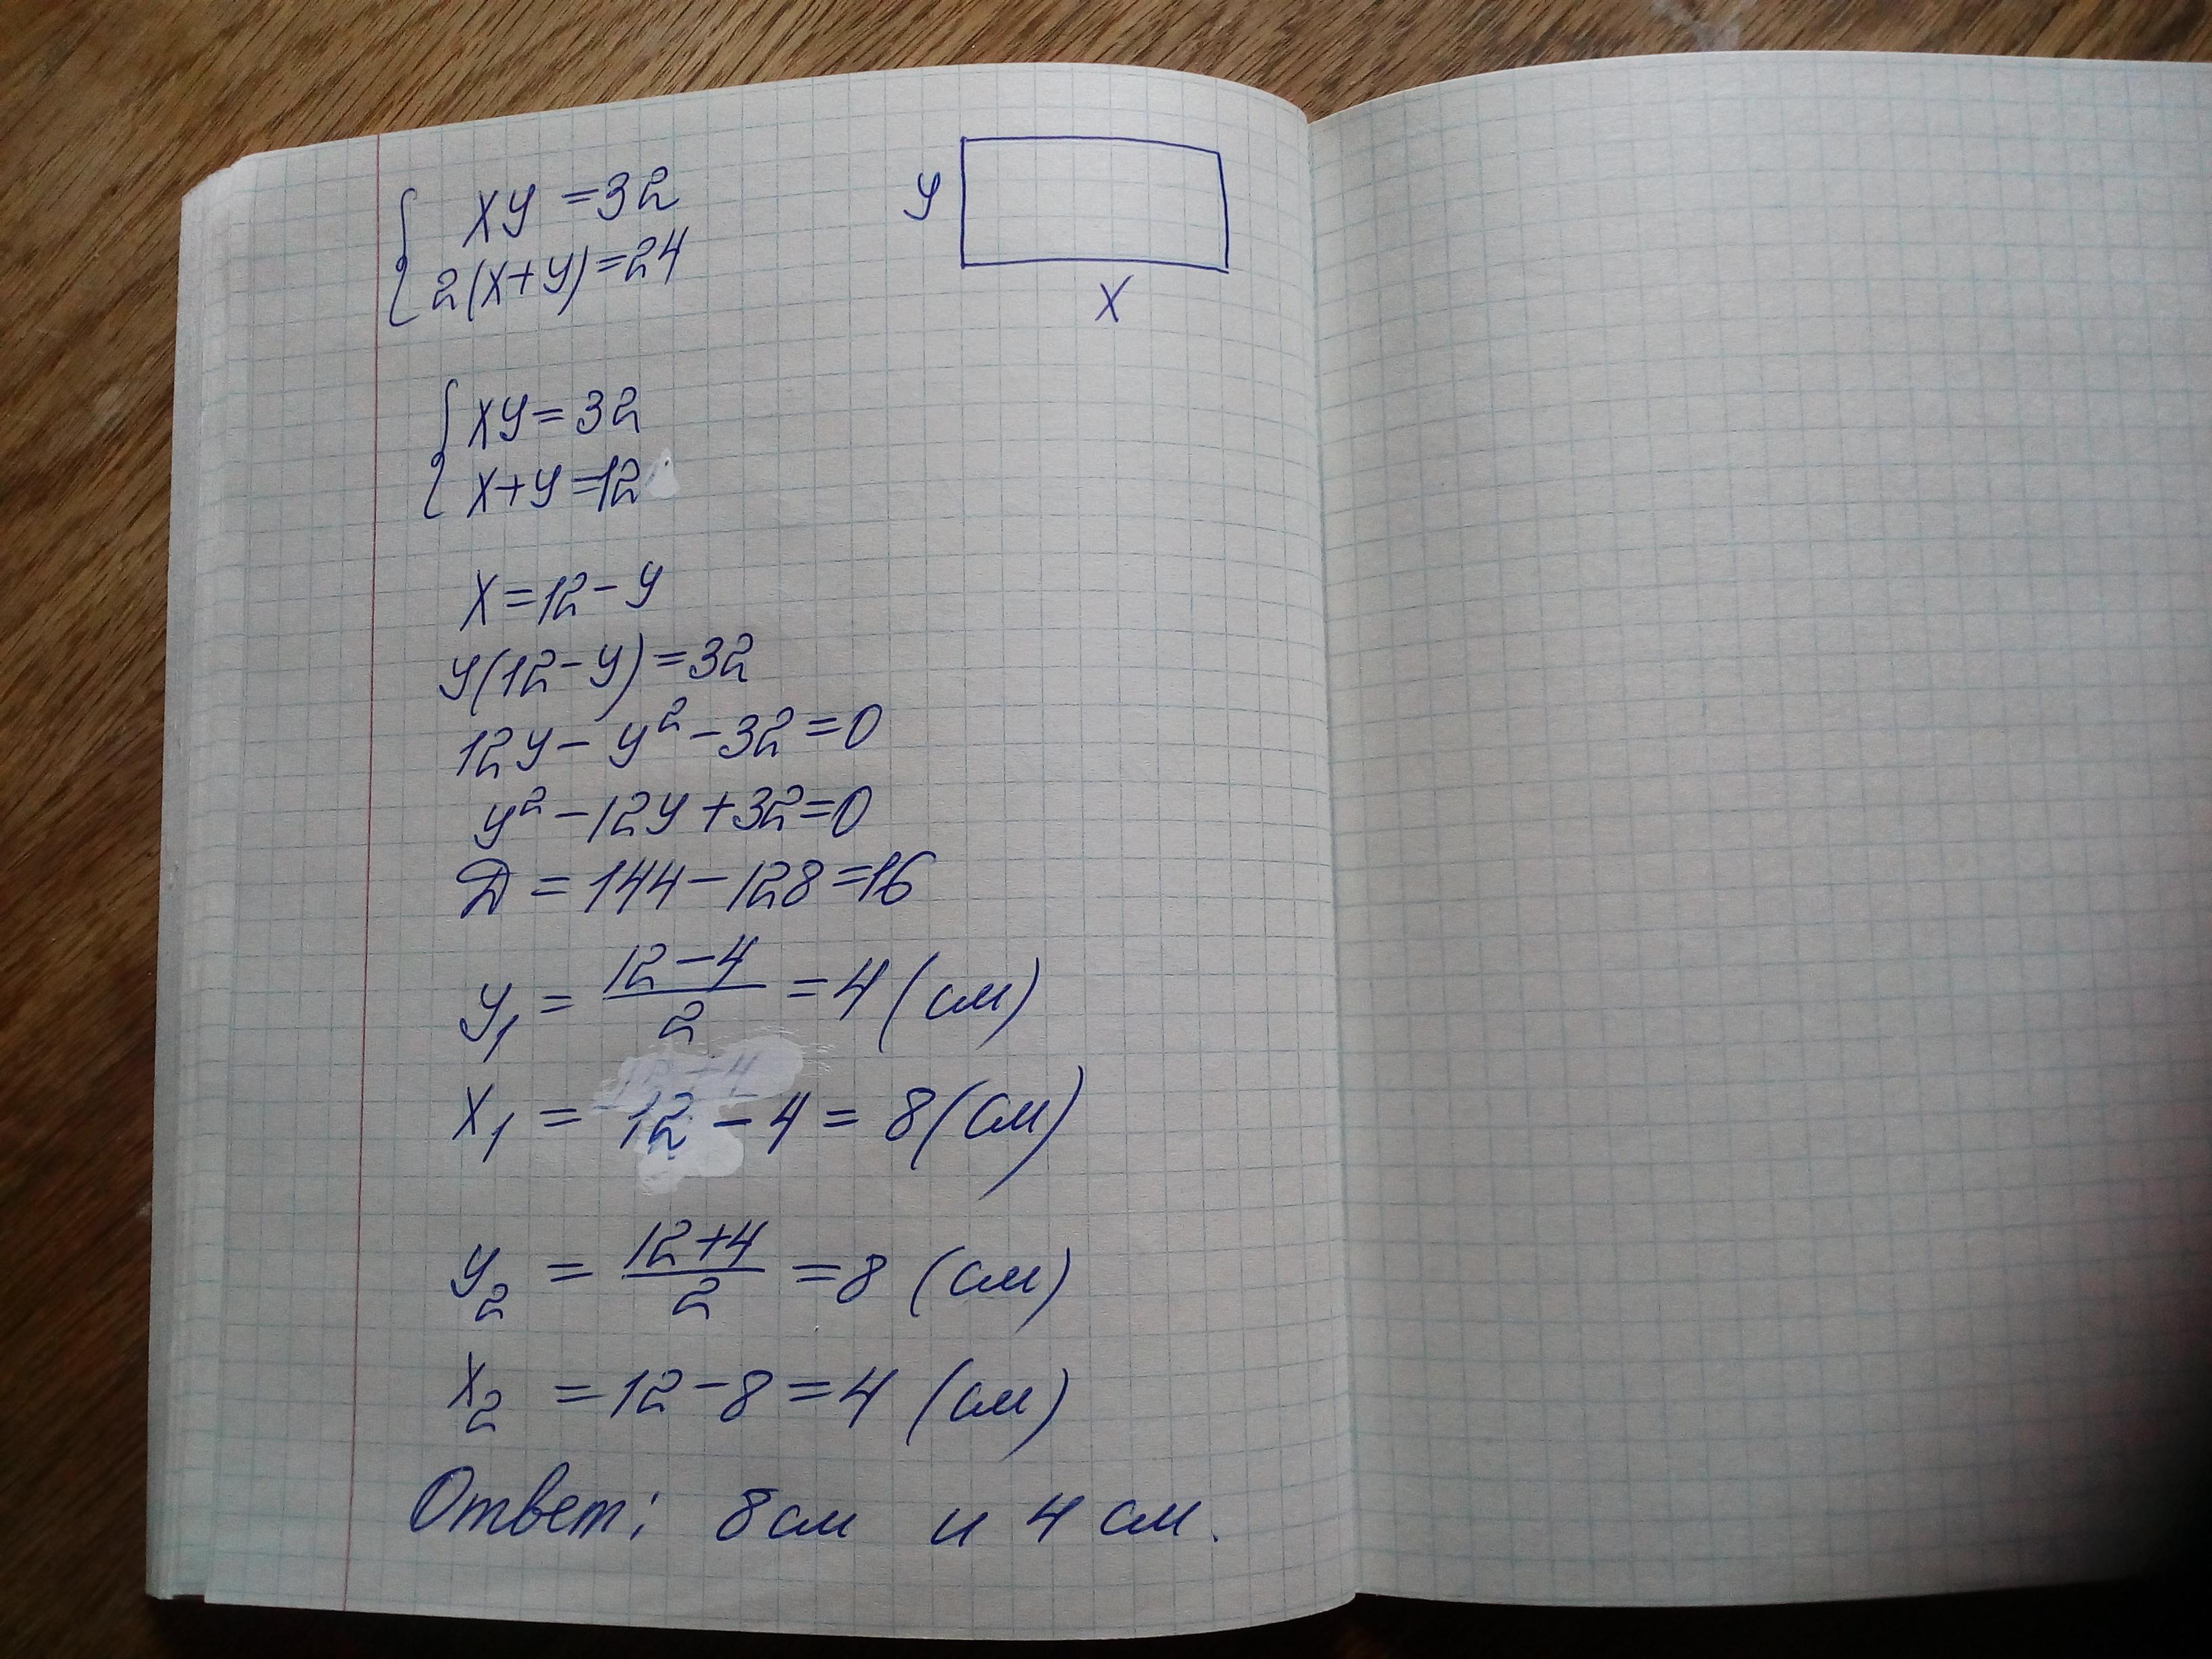 { xy = 32
2(x+y) = 24
y
x
{ xy = 32
x+y = 12
x = 12 - y
y(12 - y) = 32
12y - y² - 32 = 0
y² - 12y + 32 = 0
D = 144 - 128 = 16
y₁ = (12 - 4)/2 = 4 (см)
x₁ = 12 - 4 = 8 (см)
y₂ = (12 + 4)/2 = 8 (см)
x₂ = 12 - 8 = 4 (см)
Ответ: 8 см и 4 см.